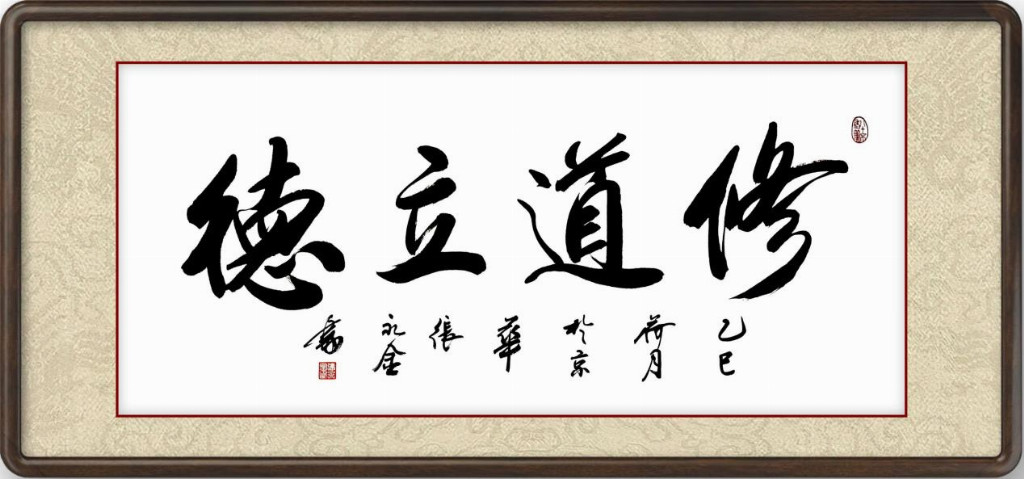 修道立德
乙巳荷月於京華張永金